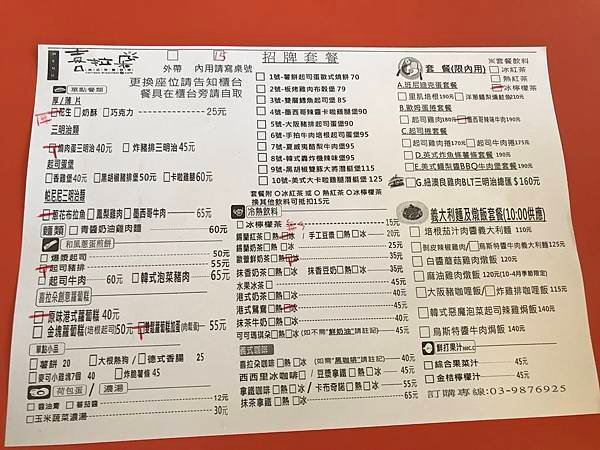 MENU
喜拉朵
外帶 內用請寫桌號 15
更換座位請告知櫃台
餐具在櫃台旁請自取
單點餐類
厚/薄片
花生 奶酥 巧克力 25元
三明治類
燒肉蛋三明治 40元 炸豬排三明治 45元
起司蛋堡
香雞堡 40元 黑胡椒豬排堡 50元 卡啦雞腿 60元
帕尼尼三明治類
翡花布拉魚 蘑醬雞肉 墨西哥牛肉 65元
麵類 青醬奶油雞肉麵 60元
和風蔥蛋煎餅
爆漿起司 50元
起司豬排 55元
起司牛肉 60元 韓式泡菜豬肉 65元
喜拉朵創意蘿蔔糕
原味港式蘿蔔糕 40元
金塊蘿蔔糕(培根起司)50元 雙蘿蔔糕加蛋(肉鬆蛋) 55元
單點小品
薯餅 20 大根熱狗 / 德式香腸 25
麥可小雞塊7個 40 炸脆薯條 45
荷包蛋 / 濃湯
醬油膏 番茄醬 12元
玉米蔬菜濃湯 30元
招牌套餐
1號-薯餅起司蛋歐式燒餅 70
2號-板烤雞肉布穀堡 79
3號-雙層鱈魚起司堡 85
4號-墨西哥辣醬卡啦雞腿堡 90
5號-大阪豬排起司蛋堡 90
6號-手拍牛肉培根起司蛋堡 95
7號-夏威夷酷梨牛肉堡 95
8號-韓式轟炸機辣味堡 95
9號-黑胡椒鹽雙豚大將潛艇堡 115
10號-美式大卡啦雞腿潛艇堡 125
套餐附 冰紅茶 或 熱紅茶 / 冰檸檬茶
換其他飲料可抵扣15元
冷熱飲料
冰檸檬茶 15元
錫蘭紅茶 熱 冰 / 手工豆漿 熱 冰 20元
錫蘭奶茶 熱 冰 30元
歐蕾鮮奶茶 熱 冰 35元
抹香奶茶 熱 冰 抹香豆奶 熱 冰 35元
水果冰茶 35元
港式奶茶 熱 冰 40元
港式鴛鴦 熱 冰 45元
抹茶牛奶 熱 冰 40元
可可瑪琪朵 熱 冰 (如不需"鮮奶油"請註記) 45元
義式咖啡
喜拉朵咖啡 熱 冰 (如需"黑咖啡"請註記) 40元
西西里冰咖啡 / 豆漿拿鐵 熱 冰 45元
拿鐵咖啡 熱 冰 / 卡布奇諾 熱 冰 55元
抹茶拿鐵 熱 冰 65元
套 餐 (限內用)
※套餐飲料
冰紅茶
熱紅茶
冰檸檬茶
A.班尼迪克蛋套餐
里肌培根190元 洋蔥麵梨燻鮭魚210元
B.歐姆蛋捲套餐
起司雞肉180元 墨西哥辣味牛肉190元
C.起司捲套餐
起司雞肉捲170元 起司牛肉捲175元
D.英式炸魚條薯條套餐 190元
E.美式麵梨醬BBQ牛肉堡套餐 190元
G.紐澳良雞肉BLT三明治總匯 $160元
義大利麵及燉飯套餐(10:00供應)
培根茄汁肉醬義大利麵 110元
剝皮辣椒雞肉/ 烏斯特醬牛肉義大利麵 125元
白醬蘑菇雞肉燉飯 120元
麻油雞肉燉飯 120元 (10-4月季節限定)
大阪豬咖哩飯/ 炸雞排咖哩飯 115元
韓式惡魔泡菜起司辣雞焗飯 140元
烏斯特醬牛肉焗飯 140元
鮮打果汁500C.C
綜合果菜汁 45元
金桔檸檬汁 45元
訂購專線:03-9876925